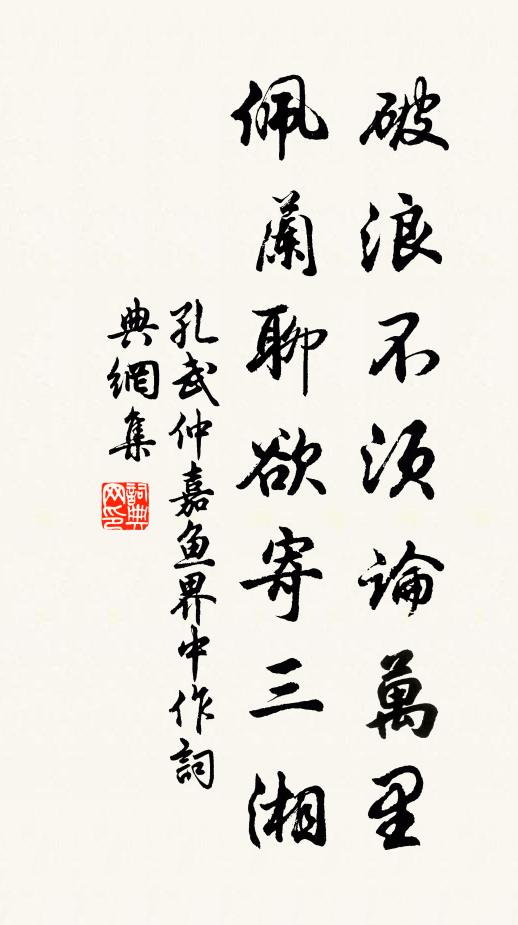 破浪不須論萬里
佩蘭聊欲寄三湘
孔武仲嘉魚界中作詞
典網集
詞典网印